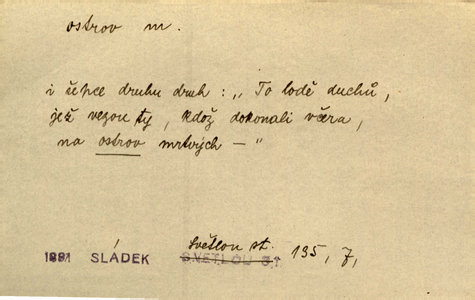 ostrov m.
i šepce druhu druh : „ To lodě duchů,
jež vezou ty, kdož dokonali včera,
na ostrov mrtvých — "
Světlou st. 195, 7,
1891 SLÁDEK SVĚTLOU ST